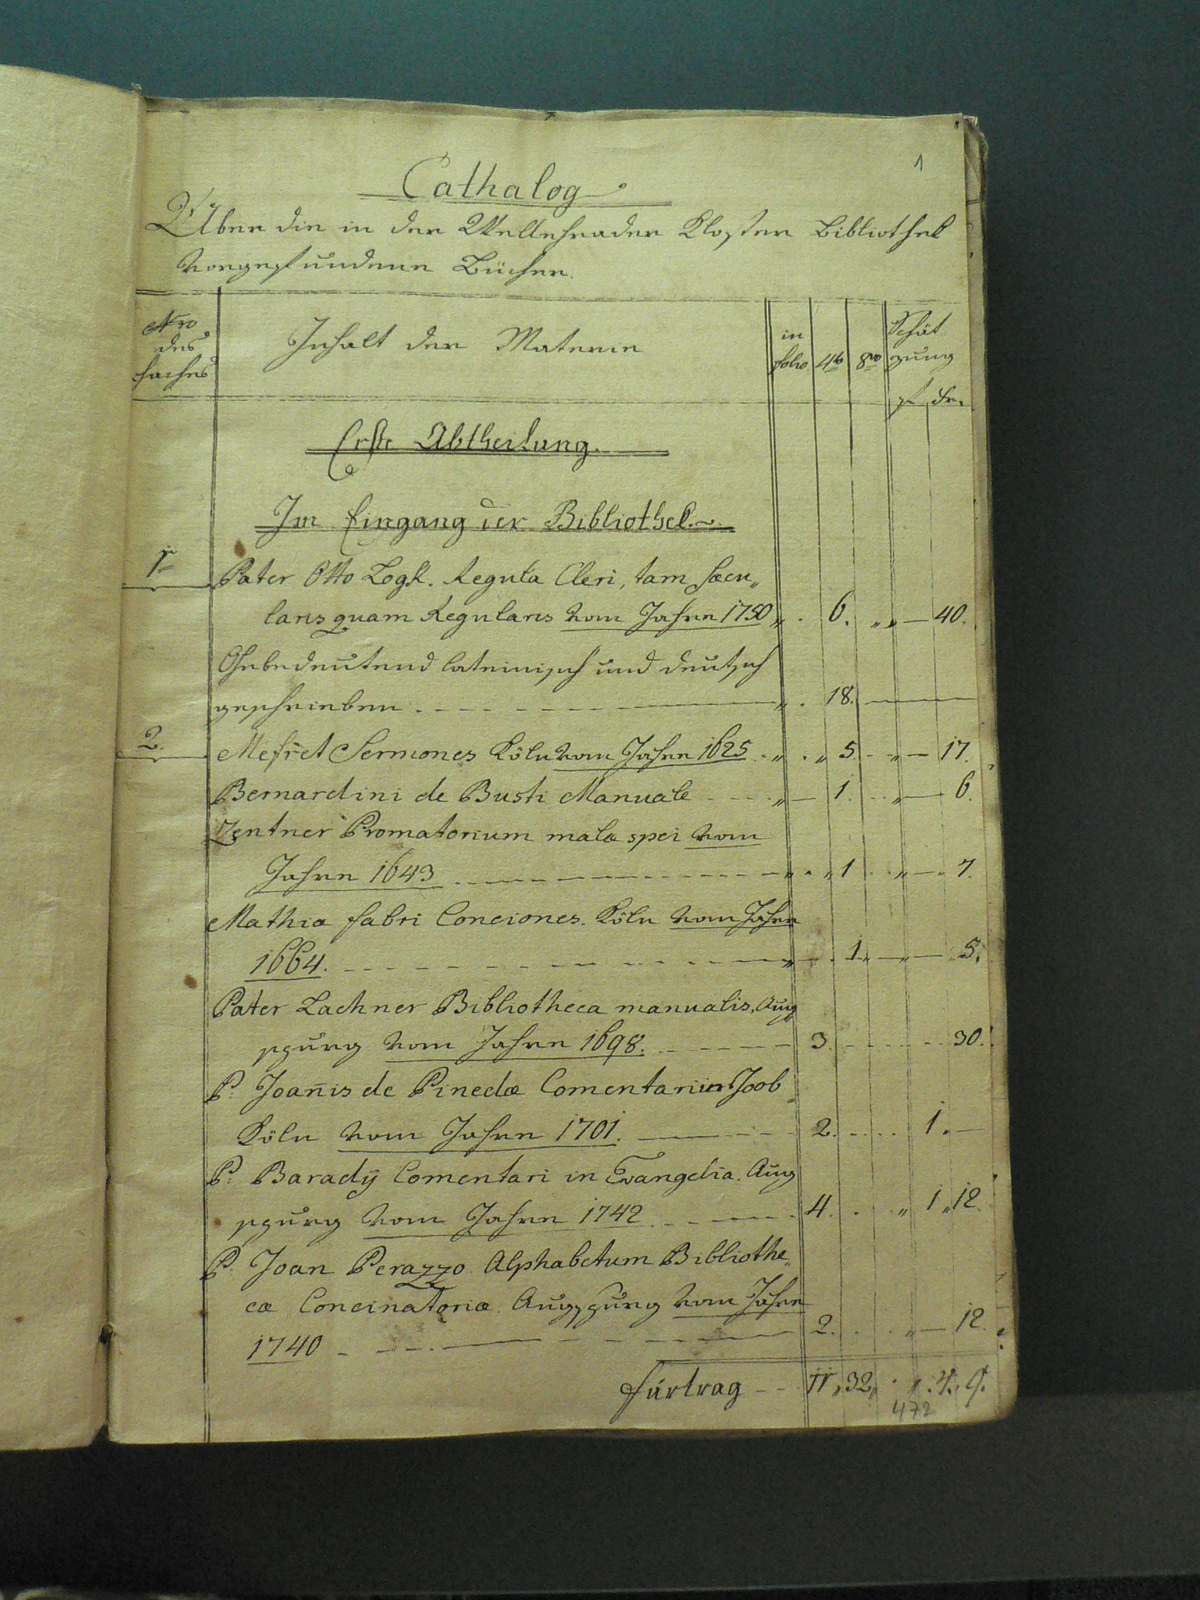 1
Cathalog
Über die in der Wellehrader Kloster Bibliothek
vorgefundene Bücher.
Nro des Faches | Inhalt der Materie | in folio | 4to | 8vo | Schätzung
f | Kr.
Erste Abtheilung.
Im Eingang der Bibliothek.
1. Pater Otto Logk. Regula Cleri, tam Sæcu„
laris quam Regularis vom Jahre 1750 „ . 6. „ „ — 40.
Ohnbedeutend lateinisch und deutsch
geschrieben . „ . 18.
2. Mefret Sermones Köln vom Jahre 1625 . „ . „ 5 . „ — 17.
Bernardini de Busti Manuale „ — 1. „ — 6.
Zentner Promatorium malæ spei vom
Jahre 1643 „ . „ 1 „ — 7.
Mathiæ Fabri Conciones. Köln vom Jahre
1664. „ 1 „ 5.
Pater Lachner Bibliotheca manualis, Aug
spurg vom Jahre 1698. 3. 30.
P. Joanis de Pineda Comentari in Joob
Köln vom Jahre 1701. 2. 1. —
P. Baradÿ Comentari in Evangelia. Aug
spurg vom Jahre 1742 4. „ 1 „ 12.
P. Joan Perazzo Alphabetum Bibliothe„
cæ Concinatoriæ. Augspurg vom Jahre
1740 2. „ — 12.
Fürtrag 11 „ 32 „ 4. 9.
472